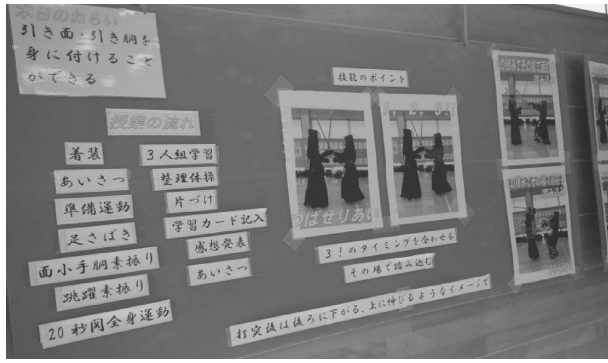 本日のねらい
引き面・引き胴を
身に付けること
ができる
授業の流れ
着装
あいさつ
準備運動
足さばき
面小手胴素振り
跳躍素振り
20秒間全身運動
3人組学習
整理体操
片づけ
学習カード記入
感想発表
あいさつ
技能のポイント
つばぜりあい
1,2,3!!
3!のタイミングを合わせる
その場で踏み込む
打突後は後ろに下がる、上に伸びるようなイメージで